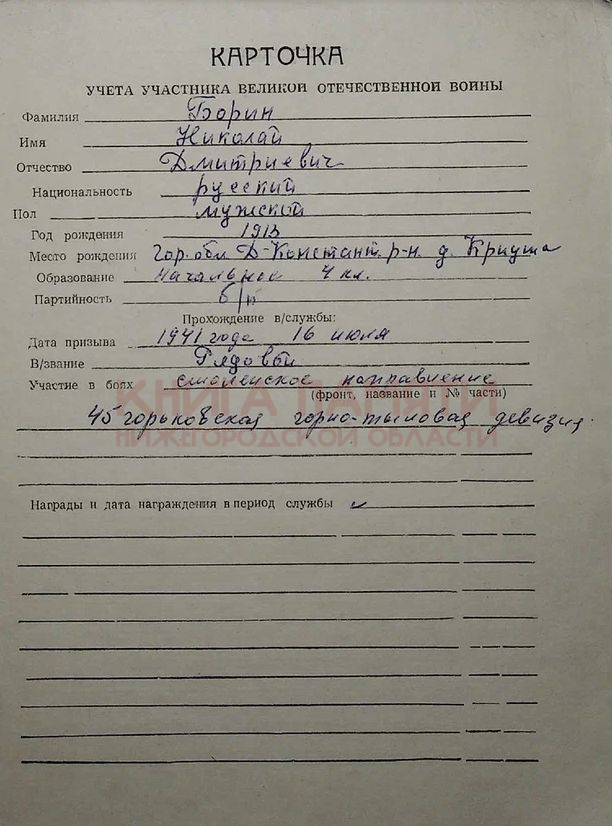 КАРТОЧКА
УЧЕТА УЧАСТНИКА ВЕЛИКОЙ ОТЕЧЕСТВЕННОЙ ВОЙНЫ
Фамилия Борин
Имя Николай
Отчество Дмитриевич
Национальность русский
Пол мужской
Год рождения 1913
Место рождения Гор. обл. Д-Констант. р-н. д. Криуша
Образование начальное 4 кл.
Партийность б/п
Прохождение в/службы:
Дата призыва 1941 года 16 июля
В/звание Рядовой
Участие в боях смоленское направление
(фронт, название и № части)
45 горьковская горно-тыловая девизия.
КНИГА ПАМЯТИ
НИЖЕГОРОДСКОЙ ОБЛАСТИ
Награды и дата награждения в период службы